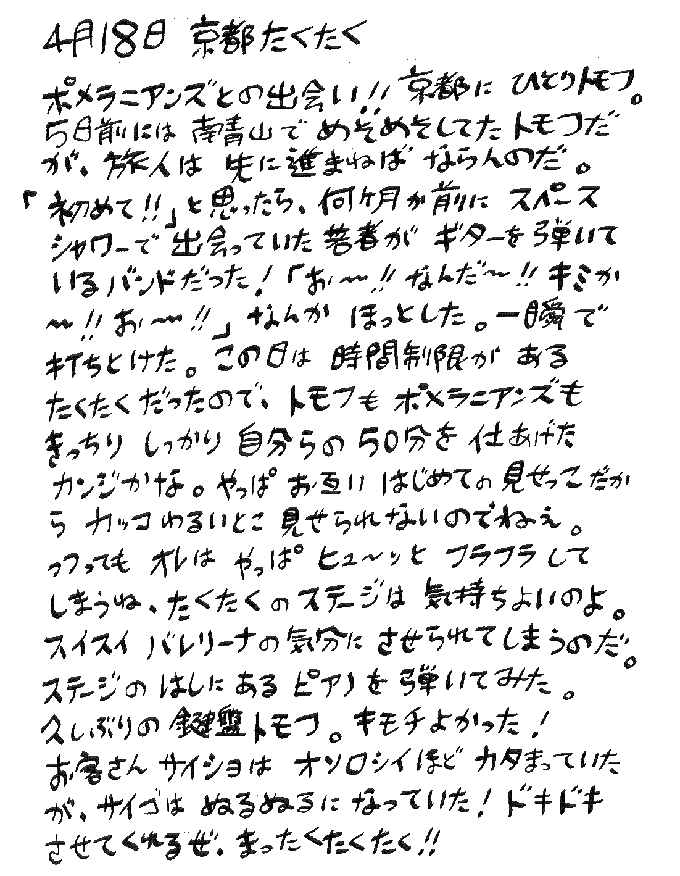 4月18日 京都たくたく
ポメラニアンズとの出会い!! 京都に ひとりトモフ。
5日前には 南青山で めそめそしてた トモフだ
が、旅人は 先に進まねば ならんのだ。
「初めて!!」と思ったら、何ヶ月か前に スペース
シャワーで 出会っていた若者が ギターを弾いて
いるバンドだった!「お〜!! なんだ〜!! キミか
〜!! お〜!!」なんか ほっとした。一瞬で
打ちとけた。この日は 時間制限が ある
たくたくだったので、トモフも ポメラニアンズも
きっちり しっかり 自分らの 50分を 仕あげた
カンジかな。やっぱ お互い はじめての 見せっこだか
ら カッコわるいとこ 見せられないのでねぇ。
っつっても オレは やっぱ ヒュ〜ッと フラフラして
しまうね、たくたくのステージは 気持ちよいのよ。
スイスイ バレリーナの気分に させられてしまうのだ。
ステージの はしにある ピアノを 弾いてみた。
久しぶりの 鍵盤トモフ。キモチよかった!
お客さん サイショは オソロシイほど カタまっていた
が、サイゴは ぬるぬるに なっていた! ドキドキ
させてくれるぜ、まったくたくたく!!